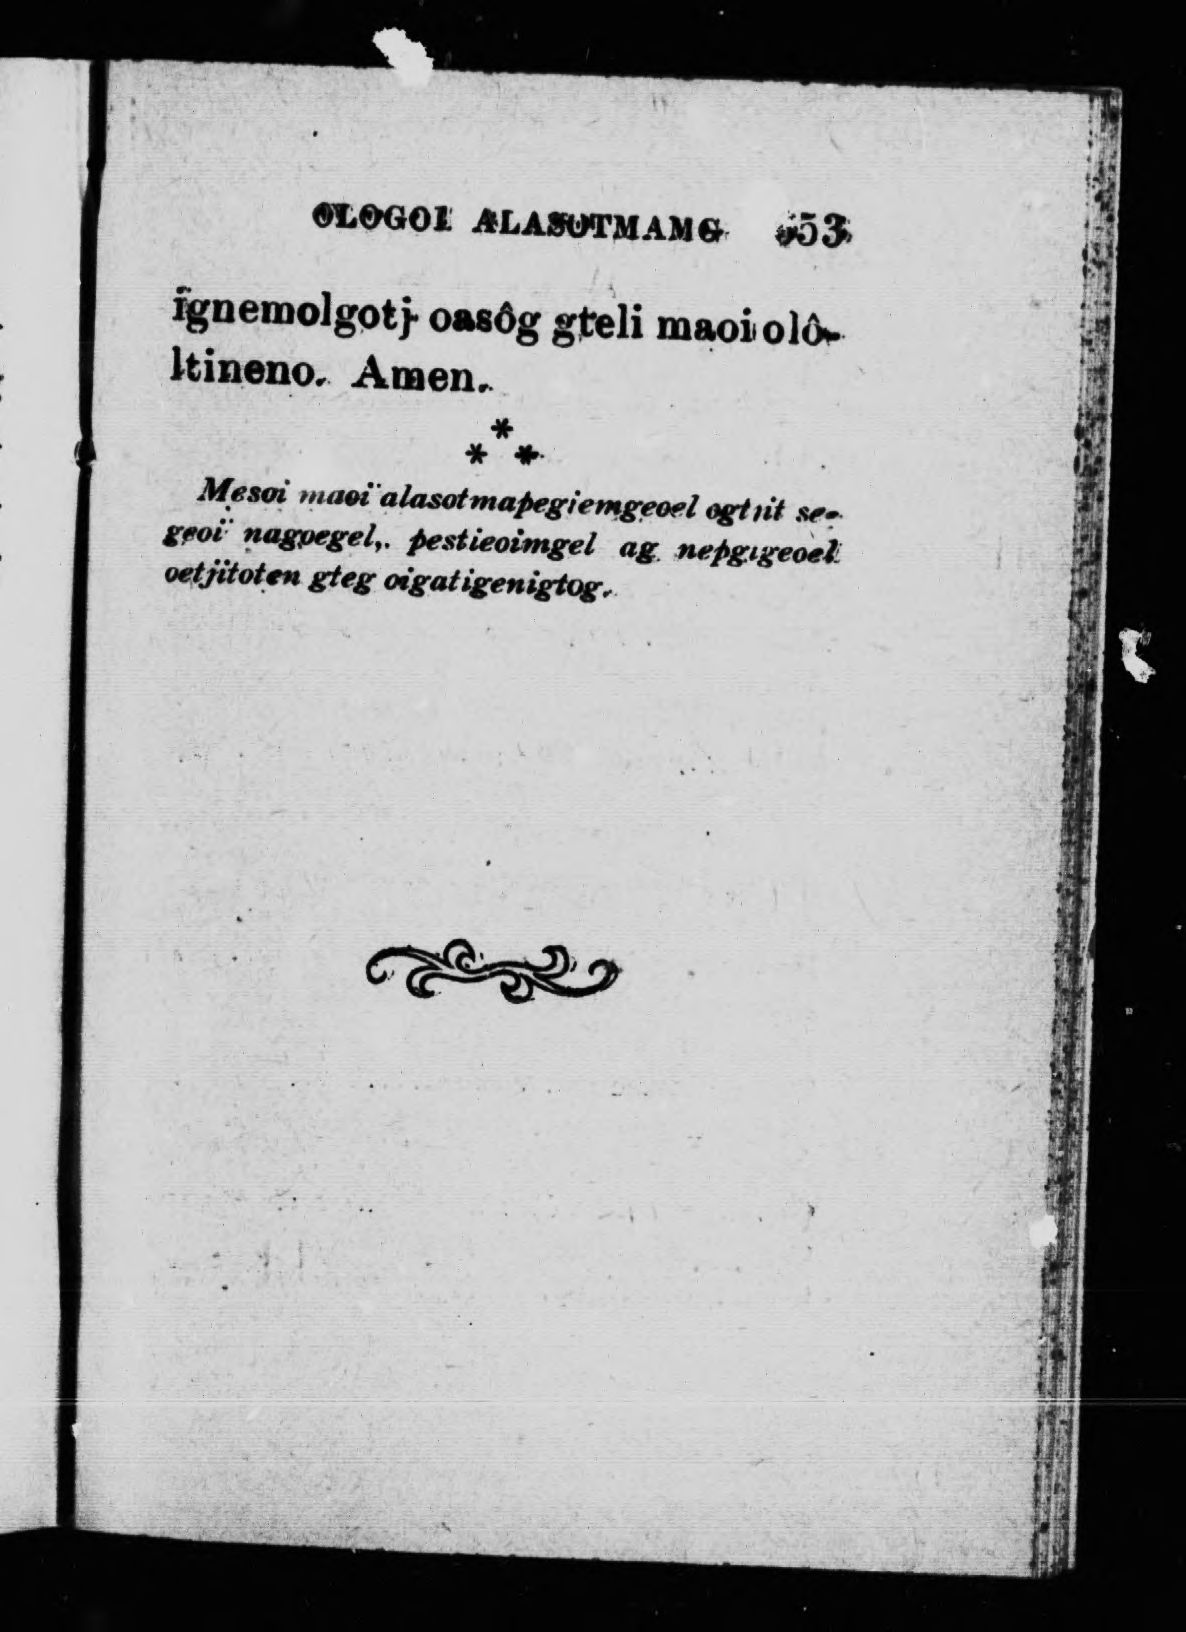 OLOGOI ALASOTMAMG 53
ignemolgotj oasôg gteli maoi olô-
ltineno. Amen.
*
* *
Mesoi maoï alasotmapegiemgeoel ogtjit se-
geoï nagoegel, pestieoimgel ag nepgigeoel
oetjitoten gteg oigatigenigtog.